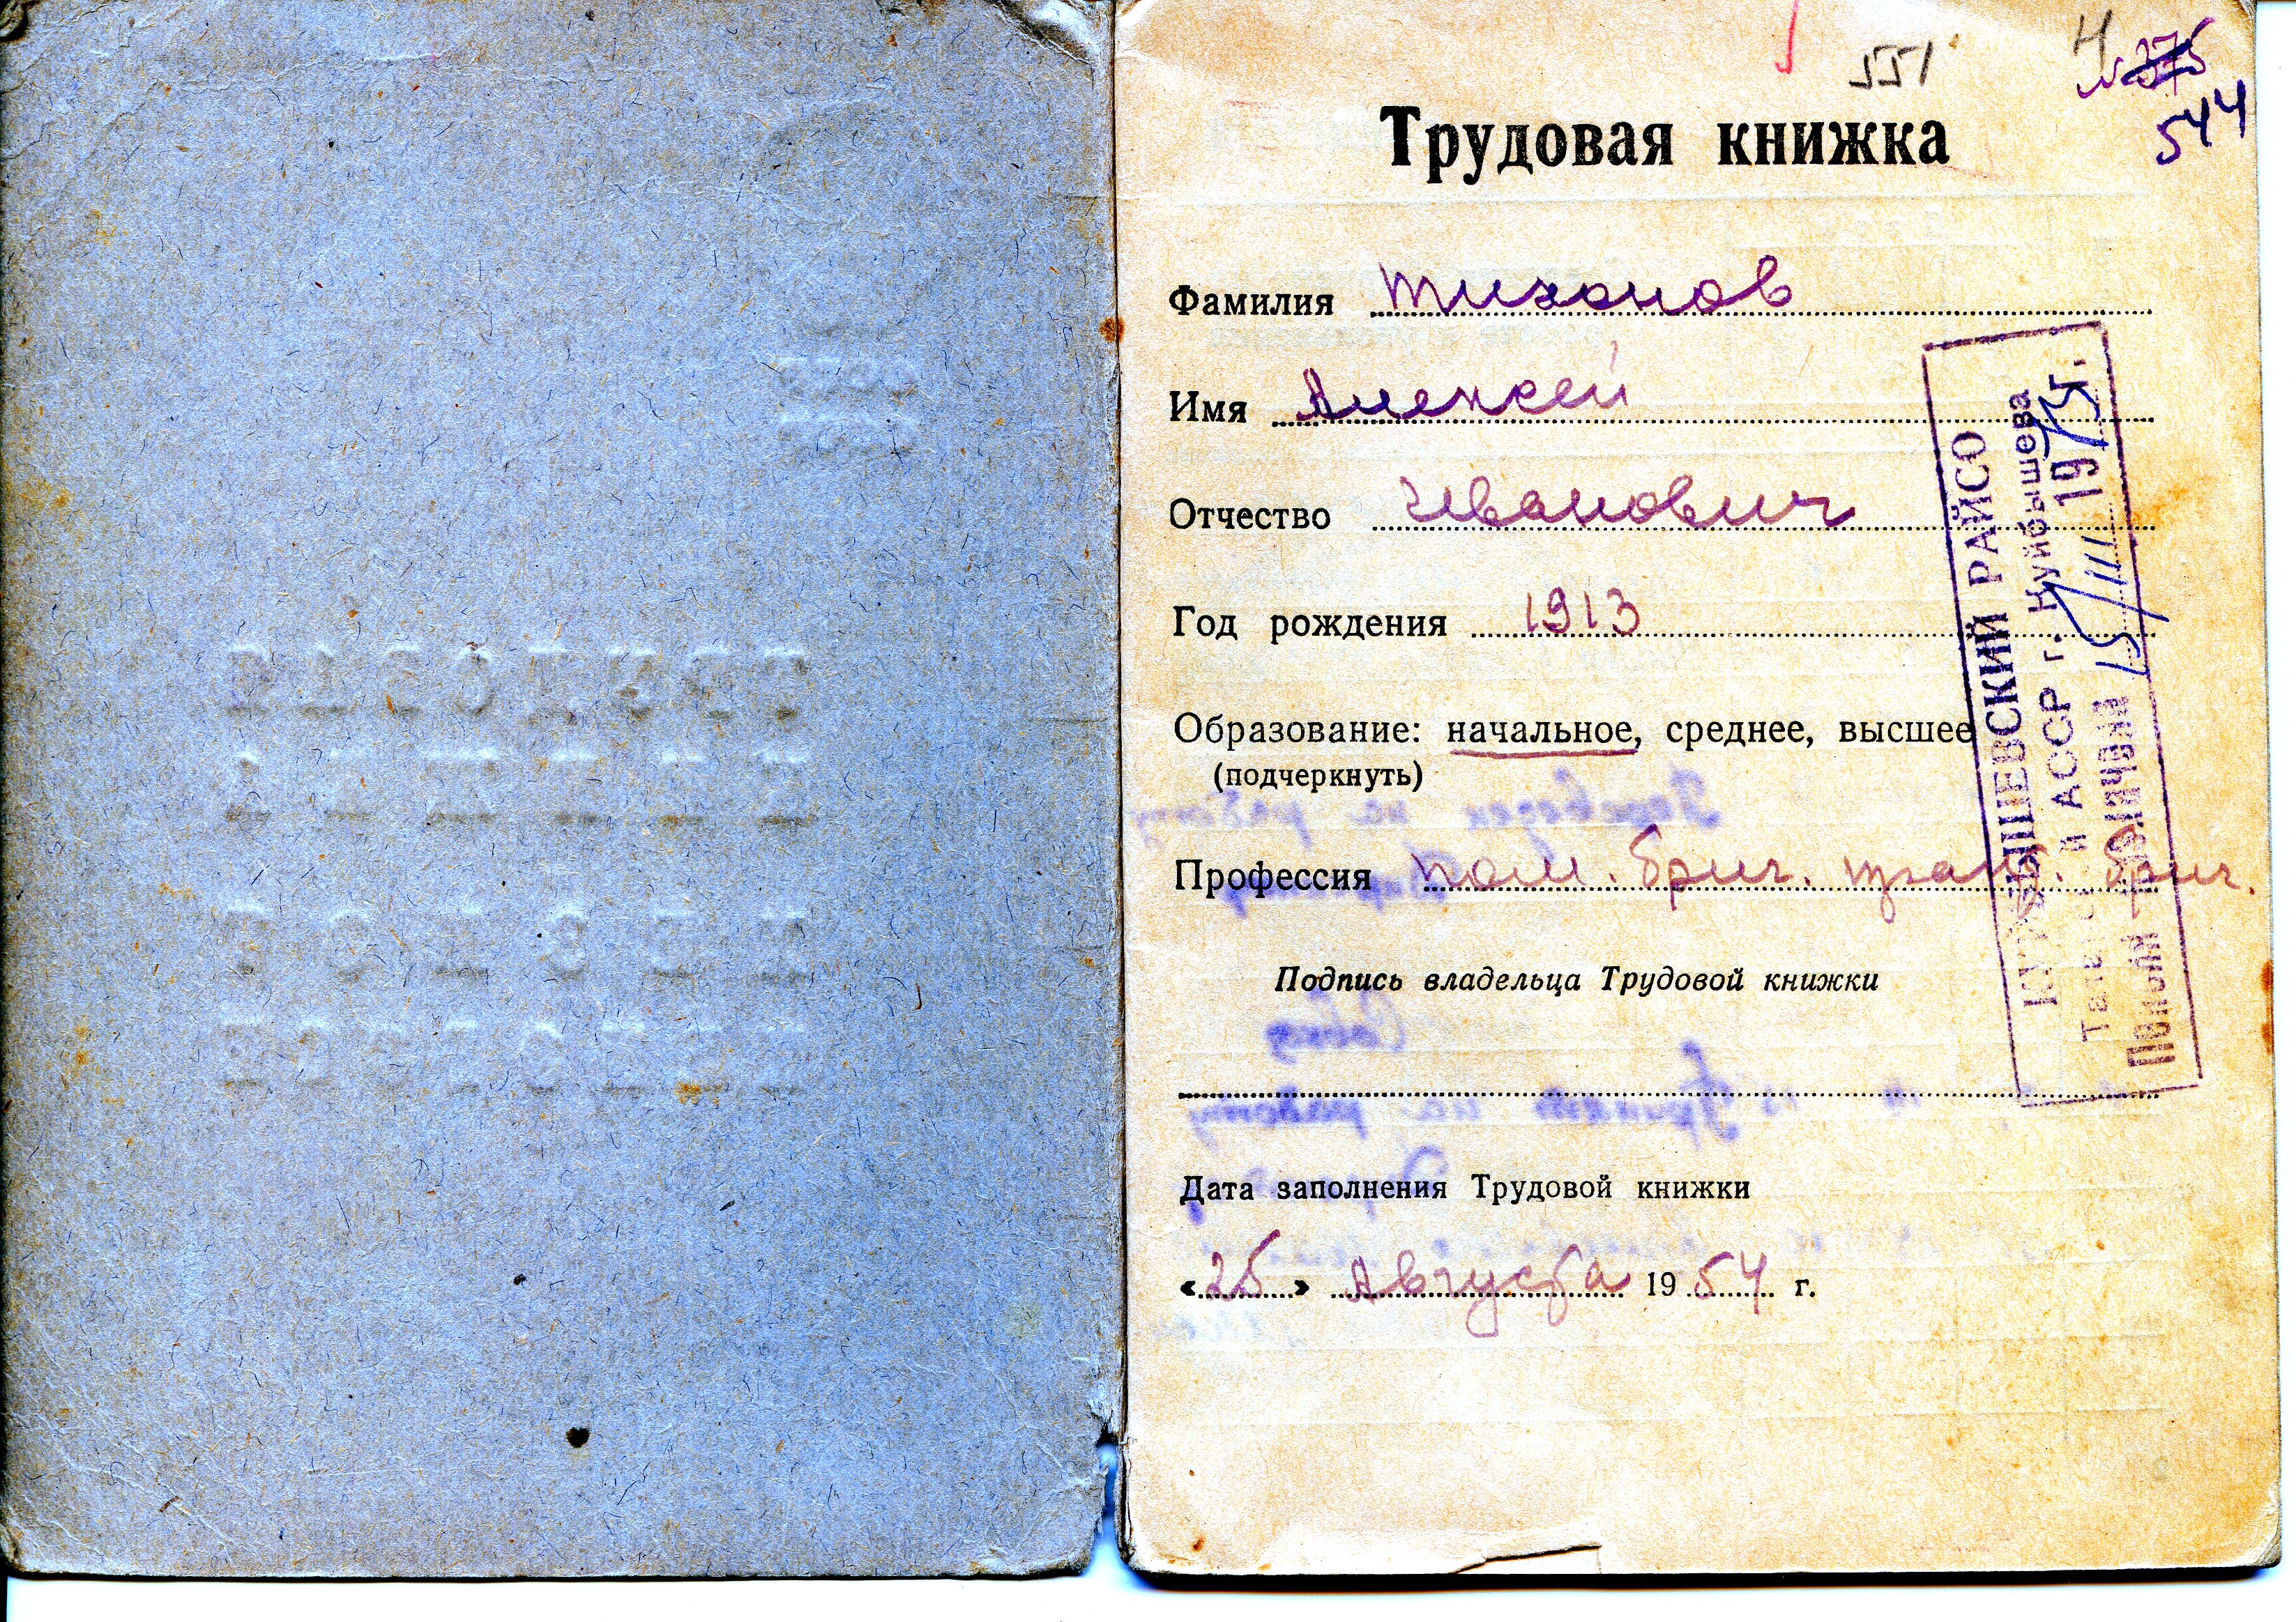 551
4
№ 375
544
Трудовая книжка
Фамилия Тихонов
Имя Алексей
Отчество Иванович
Год рождения 1913
Образование: начальное, среднее, высшее
(подчеркнуть)
Профессия пом. бриг. трак. бриг.
Подпись владельца Трудовой книжки
Дата заполнения Трудовой книжки
«25» Августа 1954 г.
КУЙБЫШЕВСКИЙ РАЙСО
й АССР г. Куйбышева
15/III 1975 г.